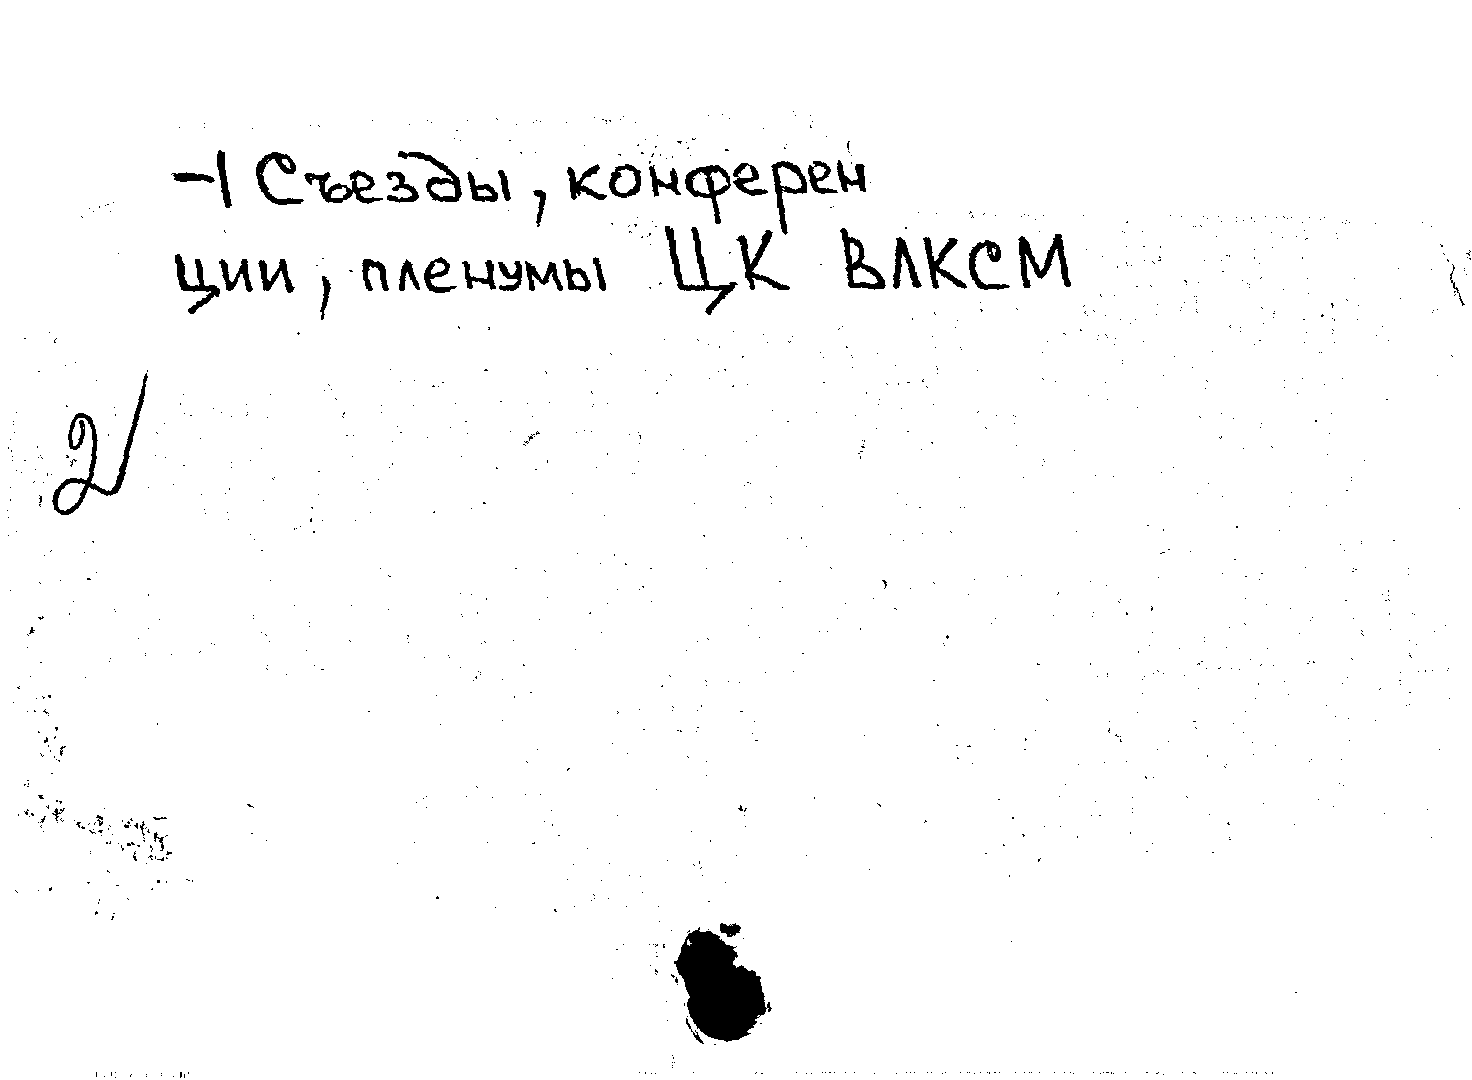 -1 Съезды, конферен
ции, пленумы ЦК ВЛКСМ
2